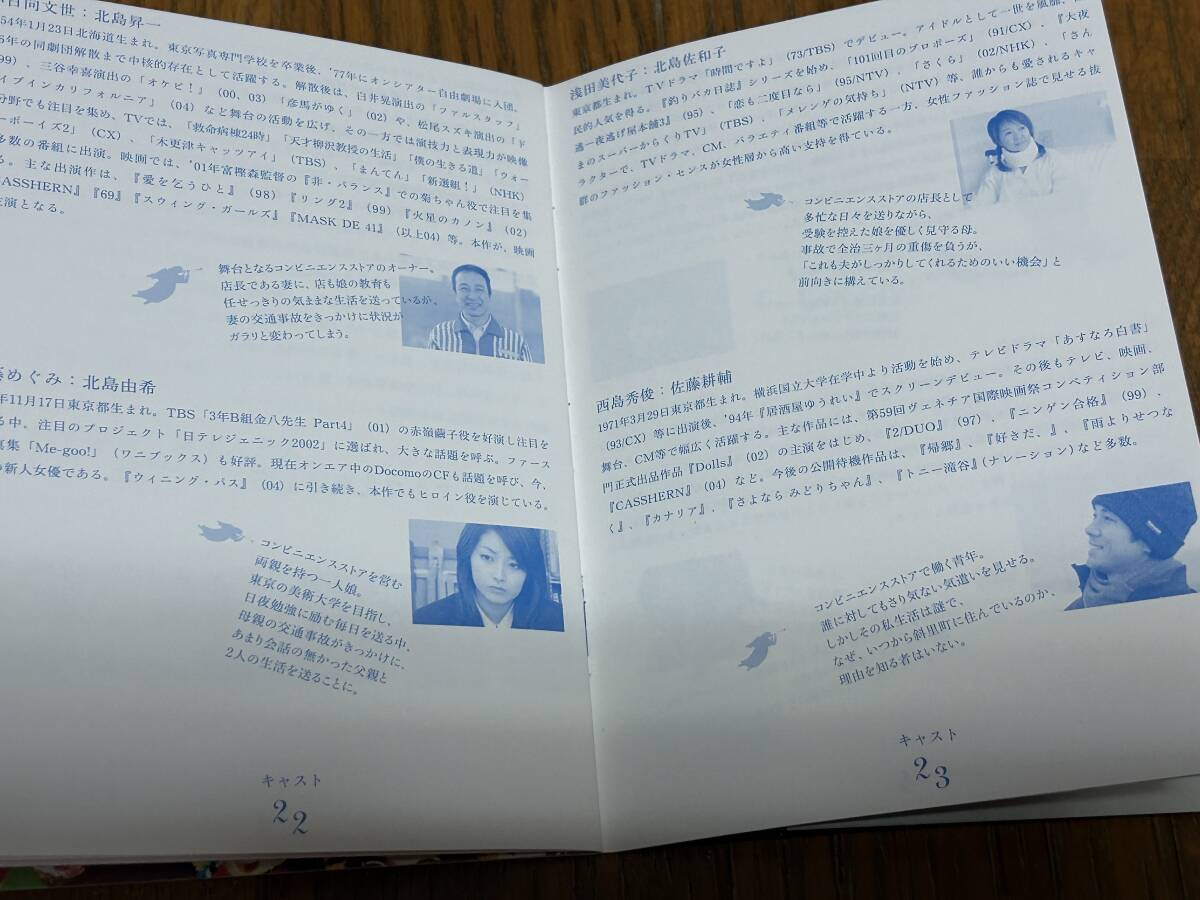 日向文世：北島昇一
54年1月23日北海道生まれ。東京写真専門学校を卒業後、'77年にオンシアター自由劇場に入団。
6年の同劇団解散まで中核的存在として活躍する。解散後は、白井晃演出の「ファルスタッフ」
99）、三谷幸喜演出の「オケピ！」（00、03）「彦馬がゆく」（02）や、松尾スズキ演出の「ド
イブインカリフォルニア」（04）など舞台の活動を広げ、その一方では演技力と表現力が映像
分野でも注目を集め、TVでは、「救命病棟24時」「天才柳沢教授の生活」「僕の生きる道」「ウォー
ーボーイズ2」（CX）、「木更津キャッツアイ」（TBS）、「まんてん」「新選組！」（NHK）
多数の番組に出演。映画では、'01年富樫森監督の『非・バランス』での菊ちゃん役で注目を集
る。主な出演作は、『愛を乞うひと』（98）『リング2』（99）『火星のカノン』（02）
CASSHERN』『69』『スウィング・ガールズ』『MASK DE 41』（以上04）等。本作が、映画
主演となる。
舞台となるコンビニエンスストアのオーナー。
店長である妻に、店も娘の教育も
任せっきりの気ままな生活を送っているが、
妻の交通事故をきっかけに状況が
ガラリと変わってしまう。
めぐみ：北島由希
年11月17日東京都生まれ。TBS「3年B組金八先生 Part4」（01）の赤嶺繭子役を好演し注目を
る中、注目のプロジェクト「日テレジェニック2002」に選ばれ、大きな話題を呼ぶ。ファース
真集「Me-goo!」（ワニブックス）も好評。現在オンエア中のDocomoのCFも話題を呼び、今、
の新人女優である。『ウィニング・パス』（04）に引き続き、本作でもヒロイン役を演じている。
コンビニエンスストアを営む
両親を持つ一人娘。
東京の美術大学を目指し、
日夜勉強に励む毎日を送る中、
母親の交通事故がきっかけに、
あまり会話の無かった父親と
2人の生活を送ることに。
キャスト
22
浅田美代子：北島佐和子
東京都生まれ。TVドラマ「時間ですよ」（73/TBS）でデビュー。アイドルとして一世を風靡、
民的人気を得る。『釣りバカ日誌』シリーズを始め、「101回目のプロポーズ」（91/CX）、『大夜
逃一夜逃げ屋本舗3』（95）、「恋も二度目なら」（95/NTV）、「さくら」（02/NHK）、「さん
まのスーパーからくりTV」（TBS）、「メレンゲの気持ち」（NTV）等、誰からも愛されるキャ
ラクターで、TVドラマ、CM、バラエティ番組等で活躍する一方、女性ファッション誌で見せる抜
群のファッション・センスが女性層から高い支持を得ている。
コンビニエンスストアの店長として
多忙な日々を送りながら、
受験を控えた娘を優しく見守る母。
事故で全治三ヶ月の重傷を負うが、
「これも夫がしっかりしてくれるためのいい機会」と
前向きに構えている。
西島秀俊：佐藤耕輔
1971年3月29日東京都生まれ。横浜国立大学在学中より活動を始め、テレビドラマ「あすなろ白書」
（93/CX）等に出演後、'94年『居酒屋ゆうれい』でスクリーンデビュー。その後もテレビ、映画、
舞台、CM等で幅広く活躍する。主な作品には、第59回ヴェネチア国際映画祭コンペティション部
門正式出品作品『Dolls』（02）の主演をはじめ、『2/DUO』（97）、『ニンゲン合格』（99）、
『CASSHERN』（04）など。今後の公開待機作品は、『帰郷』、『好きだ、』、『雨よりせつな
く』、『カナリア』、『さよなら みどりちゃん』、『トニー滝谷』（ナレーション）など多数。
コンビニエンスストアで働く青年。
誰に対してもさり気ない気遣いを見せる。
しかしその私生活は謎で、
なぜ、いつから斜里町に住んでいるのか、
理由を知る者はいない。
キャスト
23